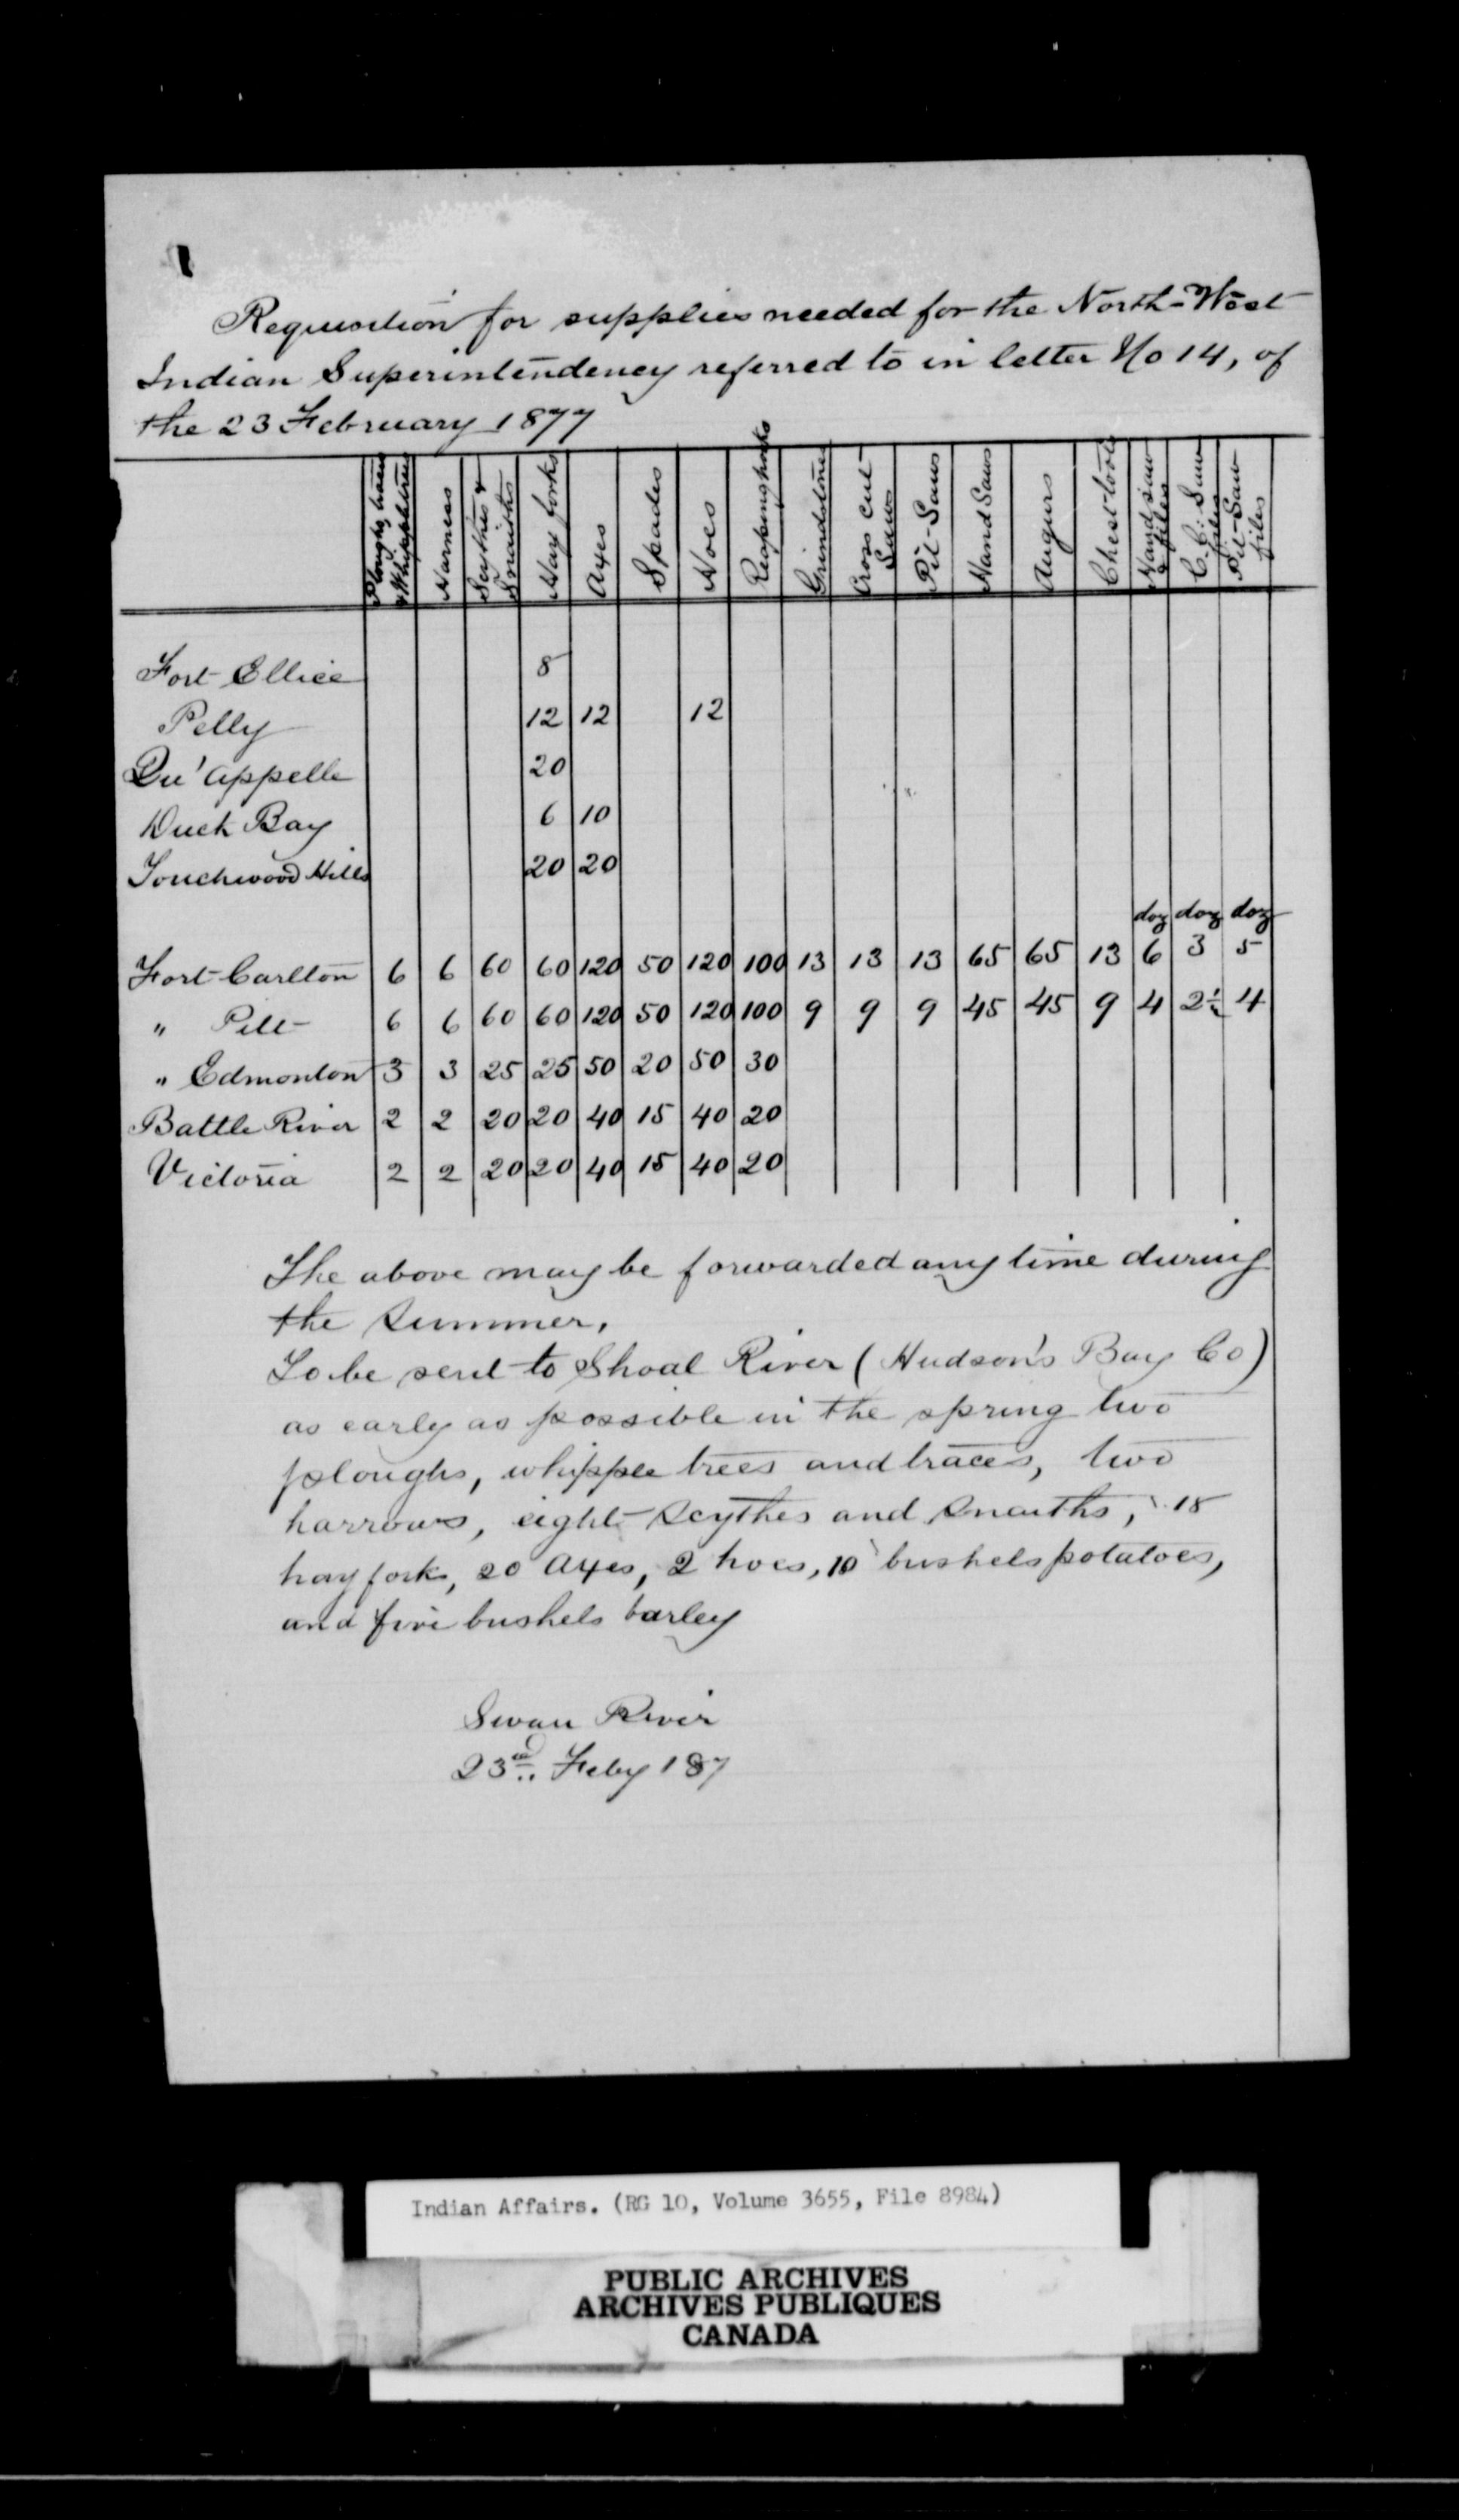 Requisition for supplies needed for the North-West
Indian Superintendency referred to in letter No 14, of
the 23 February 1877
Ploughs, & Whippletrees | Harness | Scythes & Snaiths | Hay forks | Axes | Spades | Hoes | Reaping hooks | Grindstones | Cross cut Saws | Pit-Saws | Hand Saws | Augurs | Chest tools | Hand saw files | C. C. Saw files | Pit-Saw files
Fort Ellice 8
Pelly 12 12 12
Qu'appelle 20
Duck Bay 6 10
Touchwood Hills 20 20
doz doz doz
Fort Carlton 6 6 60 60 120 50 120 100 13 13 13 65 65 13 6 3 5
" Pitt 6 6 60 60 120 50 120 100 9 9 9 45 45 9 4 2½ 4
" Edmonton 3 3 25 25 50 20 50 30
Battle River 2 2 20 20 40 15 40 20
Victoria 2 2 20 20 40 15 40 20
The above may be forwarded any time during
the summer.
To be sent to Shoal River (Hudson's Bay Co)
as early as possible in the spring two
ploughs, whipple trees and traces, two
harrows, eight scythes and snaiths, 18
hay forks, 20 axes, 2 hoes, 10 bushels potatoes,
and five bushels barley
Swan River
23rd Feby 187
Indian Affairs. (RG 10, Volume 3655, File 8984)
PUBLIC ARCHIVES
ARCHIVES PUBLIQUES
CANADA